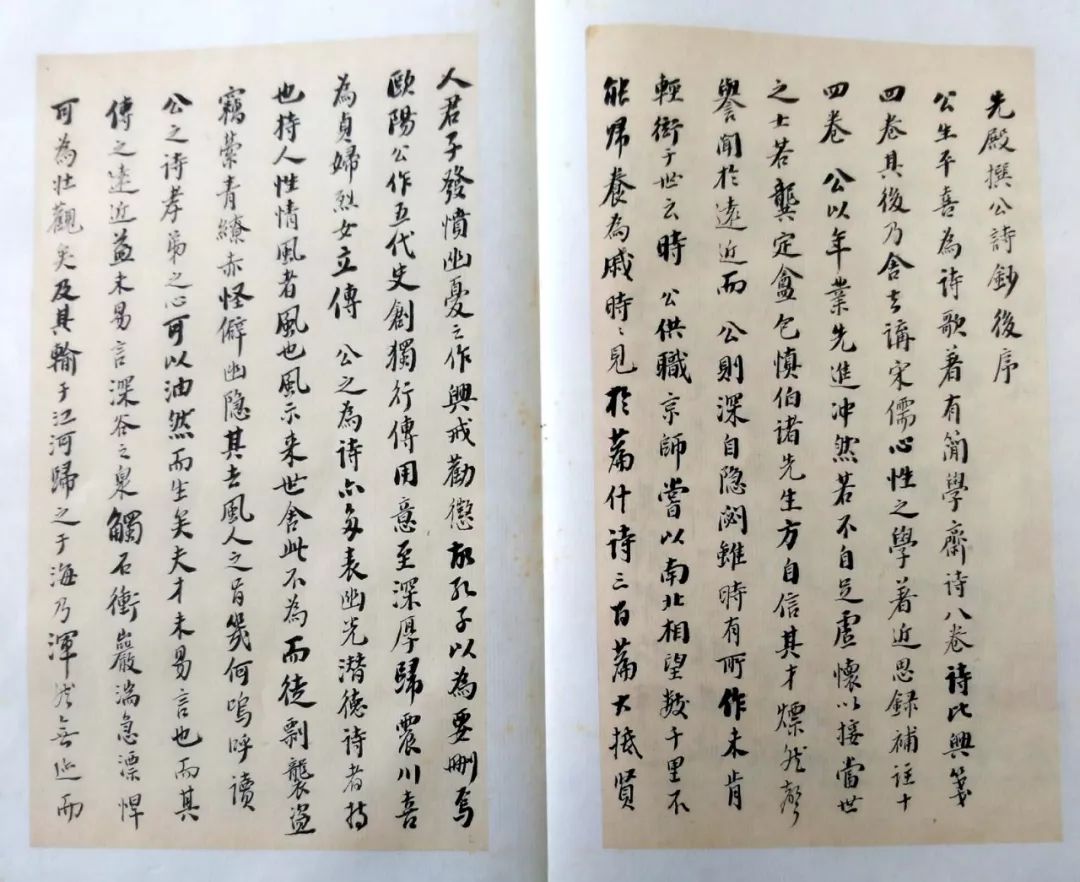 先殿撰公詩鈔後序
公生平喜為詩歌著有簡學齋詩八卷詩比興箋
四卷其後乃舍去講宋儒心性之學著近思録補註十
四卷 公以年業先進冲然若不自足虛懷以接當世
之士若龔定盦包慎伯诸先生方自信其才熛然聲
譽聞於遠近而 公則深自隐閟雖時有所作未肯
輕衒于世云時 公供職京師嘗以南北相望数千里不
能帰養為戚時〻見於篇什诗三百篇大抵賢
人君子發憤幽憂之作興戒勸懲故孔子以為要删焉
歐陽公作五代史創獨行傳用意至深厚歸震川喜
為貞婦烈女立傳 公之為诗亦多表幽光潜德诗者持
也持人性情風者風也風示来世舍此不為而徒剽襲盗
竊縈青繚赤怪僻幽隐其去風人之旨幾何嗚呼讀
公之诗孝弟之心可以油然而生矣夫才未易言也而其
傳之遠近益未易言深谷之泉觸石衝巖湍急漂悍
可為壮觀矣及其輸于江河歸之于海乃渾然無迹而